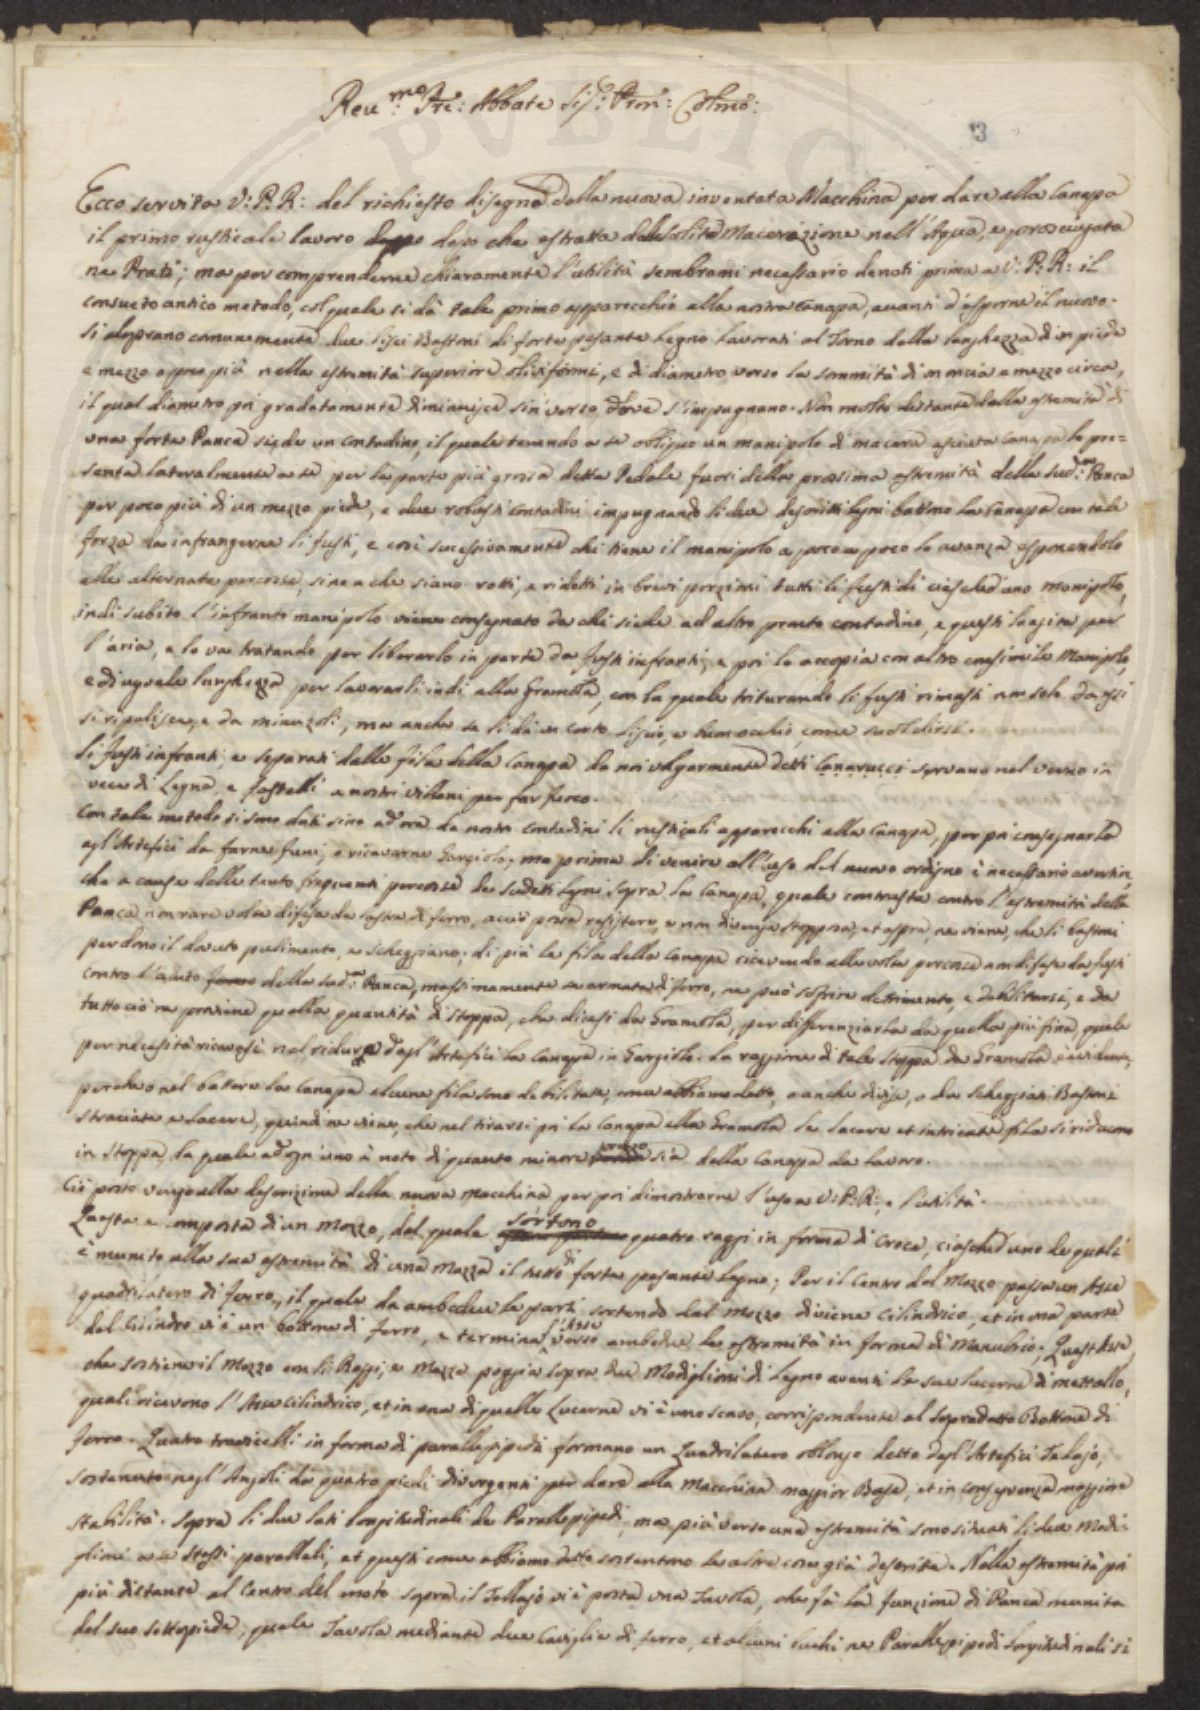 Reve.mo Pre: Abbate Sig.r Pron: Colmo:
3
Ecco servita V: P. R: del richiesto disegno della nuova inventata Macchina per dare alla Canapa
il primo rusticale lavoro dopo che estratta dalle solite Macerazione nell'Aqua, e poscia asciugata
ne Prati; ma per comprenderne chiaramente l'utilità sembrami necessario denoti prima a V: P. R: il
consueto antico metodo, col quale si dà tale primo apparecchio alla nostra Canapa, avanti d'esporne il nuovo.
Si adoprano comunemente due lisci Bastoni di forte pesante Legno lavorati al Torno della lunghezza di un piede
e mezzo o poco più nella estremità superiore oliviformi, e di diametro verso la sommità di oncia a mezzo circa,
il qual diametro poi gradatamente diminuisce sin verso, dove s'impugnano. Non molto distante dalla estremità di
una forte Panca siede un contadino, il quale tenendo a se obliquo un manipolo di macera asciuta Canapa lo pre=
senta lateralmente a se per la parte più grossa detta Pedale fuori della prossima estremità della sud.a Panca
per poco più di un mezzo piede, e due robusti contadini impugnando li due descritti legni battono la Canapa con tale
forza da infrangerne li fusti, e così successivamente chi tiene il manipolo a poco a poco lo avanza esponendolo
alle alternate percosse, sino a che siano rotti, e ridotti in brevi porzioni tutti li fusti di ciasched'uno manipolo,
indi subito l'infranto manipolo viene consegnato da chi siede ad altro pronto contadino, e questi lo agita per
l'aria, e lo va tratando per liberarlo in parte da fusti infranti, e poi lo accopia con altro consimile Manipolo,
e di uguale lunghezza per lavorarli indi alla Gramola, con la quale triturando li fusti rimasti non solo da essi
si ripulisce, e da minuzoli, ma anche se li dà un certo liscio, e buon occhio, come suol dirsi.
Li fusti infranti, e separati dalle fila della Canapa da noi volgarmente detti Canarucci servano nel verno in
vece di Legna, e fastelli a nostri villani per far fuoco.
Con tale metodo si sono dati sino ad ora da nostri contadini li rusticali apparecchi alla Canapa, per poi consegnarla
agl'Artefici da farne funi, e ricavarne Gargiolo; ma prima di venire all'uso del nuovo ordigno è necessario avertire,
che a causa delle tanto frequenti percosse de sudetti Legni sopra la Canapa, quale contrasta contro l'estremità della
Panca non rare volte difesa da lastre di ferro, acciò possa resistere, e non divenga stopposa, et aspra, ne viene, che li bastoni
perdono il dovuto pulimento, e scheggiano; di più le fila della Canapa ricevendo alle volte percosse non difese da fusti
contro l'acuto della sud.a Panca, massimamente se armata di ferro, ne può soffrire detrimento, e debilitarsi, e da
tutto ciò ne proviene quella quantità di stoppa, che dicesi da Gramola, per differenziarla da quella più fina, quale
per necessità ricavasi nel ridure dagl'Artefici la Canapa in Gargiolo. La raggione di tale stoppa da Gramola è evidente,
perche nel battere la Canapa alcune fila sono debilitate, come abbiamo detto, o anche divise, o da scheggiati Bastoni
stracciate e lacere, quindi ne viene, che nel tirarsi poi la Canapa alla Gramola le lacere et intricate fila si riducono
in stoppa, la quale ad ogn'uno è noto di quanto minore prezzo sia della Canapa da lavoro.
Ciò posto vengo alla descrizione della nuova Macchina per poi dimostrarne l'uso a V: P. R:, e l'utilità.
Questa è composta di un Mozzo, dal quale sortono quatro raggi in forma di Croce, ciasched'uno de quali
è munito alla sua estremità di una Mazza il tutto di forte pesante Legno; Per il Centro del Mozzo passa un Asse
quadrilatero di ferro, il quale da ambedue le parti sortendo dal Mozzo diviene Cilindrico, et in una parte
del Cilindro vi è un bottone di ferro, e termina l'Asse verso ambedue le estremità in forma di Manubrio; Quest'Asse,
che sostiene il Mozzo con li Raggi, e Mazze poggia sopra due Modiglioni di Legno aventi le sue lucerne di mettallo,
quali ricevono l'Asse Cilindrico, et in una di quelle Lucerne vi è uno scavo, corrispondente al sopradetto Bottone di
ferro. Quatro travicelli in forma di parallepipedi formano un Quadrilatero oblongo detto dagl'Artefici Telajo,
sostenuto negl'Angoli da quatro piedi divergenti per dare alla Macchina maggior Base, et in conseguenza maggiore
stabilità. Sopra li due lati longitudinali de Parallepipedi, ma più verso una estremità sono situati li due Modi-
glioni a se stessi paralleli, et questi come abbiamo detto sostentono le altre cose già descritte. Nella estremità poi
più distante al Centro del moto sopra il Tellajo vi è posta una Tavola, che fà la funzione di Panca munita
del suo sottopiede, quale Tavola mediante due Caviglie di ferro, et alcuni buchi ne Parallepipedi longitudinali si